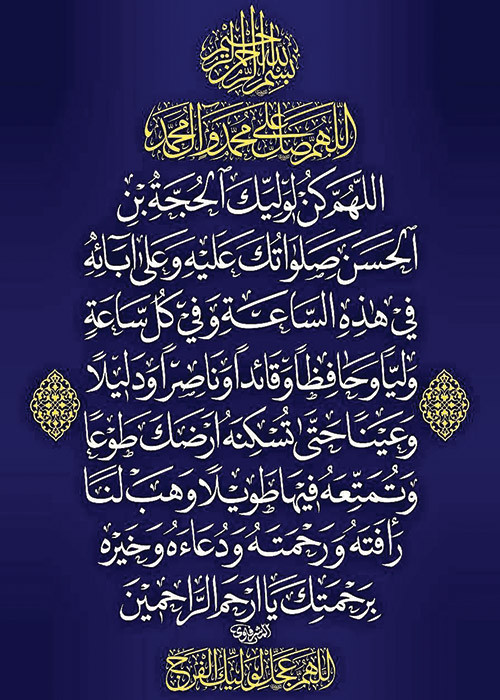 بسم الله الرحمن الرحيم
اللهم صل على محمد وآل محمد
اللهُمَّ كُنْ لِوَلِيِّكَ الحُجَّةِ بْنِ
الحَسَنِ صَلَواتُكَ عَلَيْهِ وَعَلى ابَائِهِ
في هذِهِ السَّاعَةِ وَفي كُلِّ سَاعَةٍ
وَلِيًّا وَحَافِظاً وَقَائِداً وَنَاصِراً وَدَلِيلًا
وَعَيْنًا حَتّى تُسْكِنَهُ ارْضَكَ طَوْعًا
وَتُمَتِّعَهُ فِيهَا طَوِيلًا وَهَبْ لَنَا
رَأفَتَهُ وَرَحْمَتَهُ وَدُعَاءَهُ وَخَيْرَهُ
بِرَحْمَتِكَ يَا ارْحَمَ الرَّاحِمِينَ
الشرقاوي
اللهم عجل لوليك الفرج